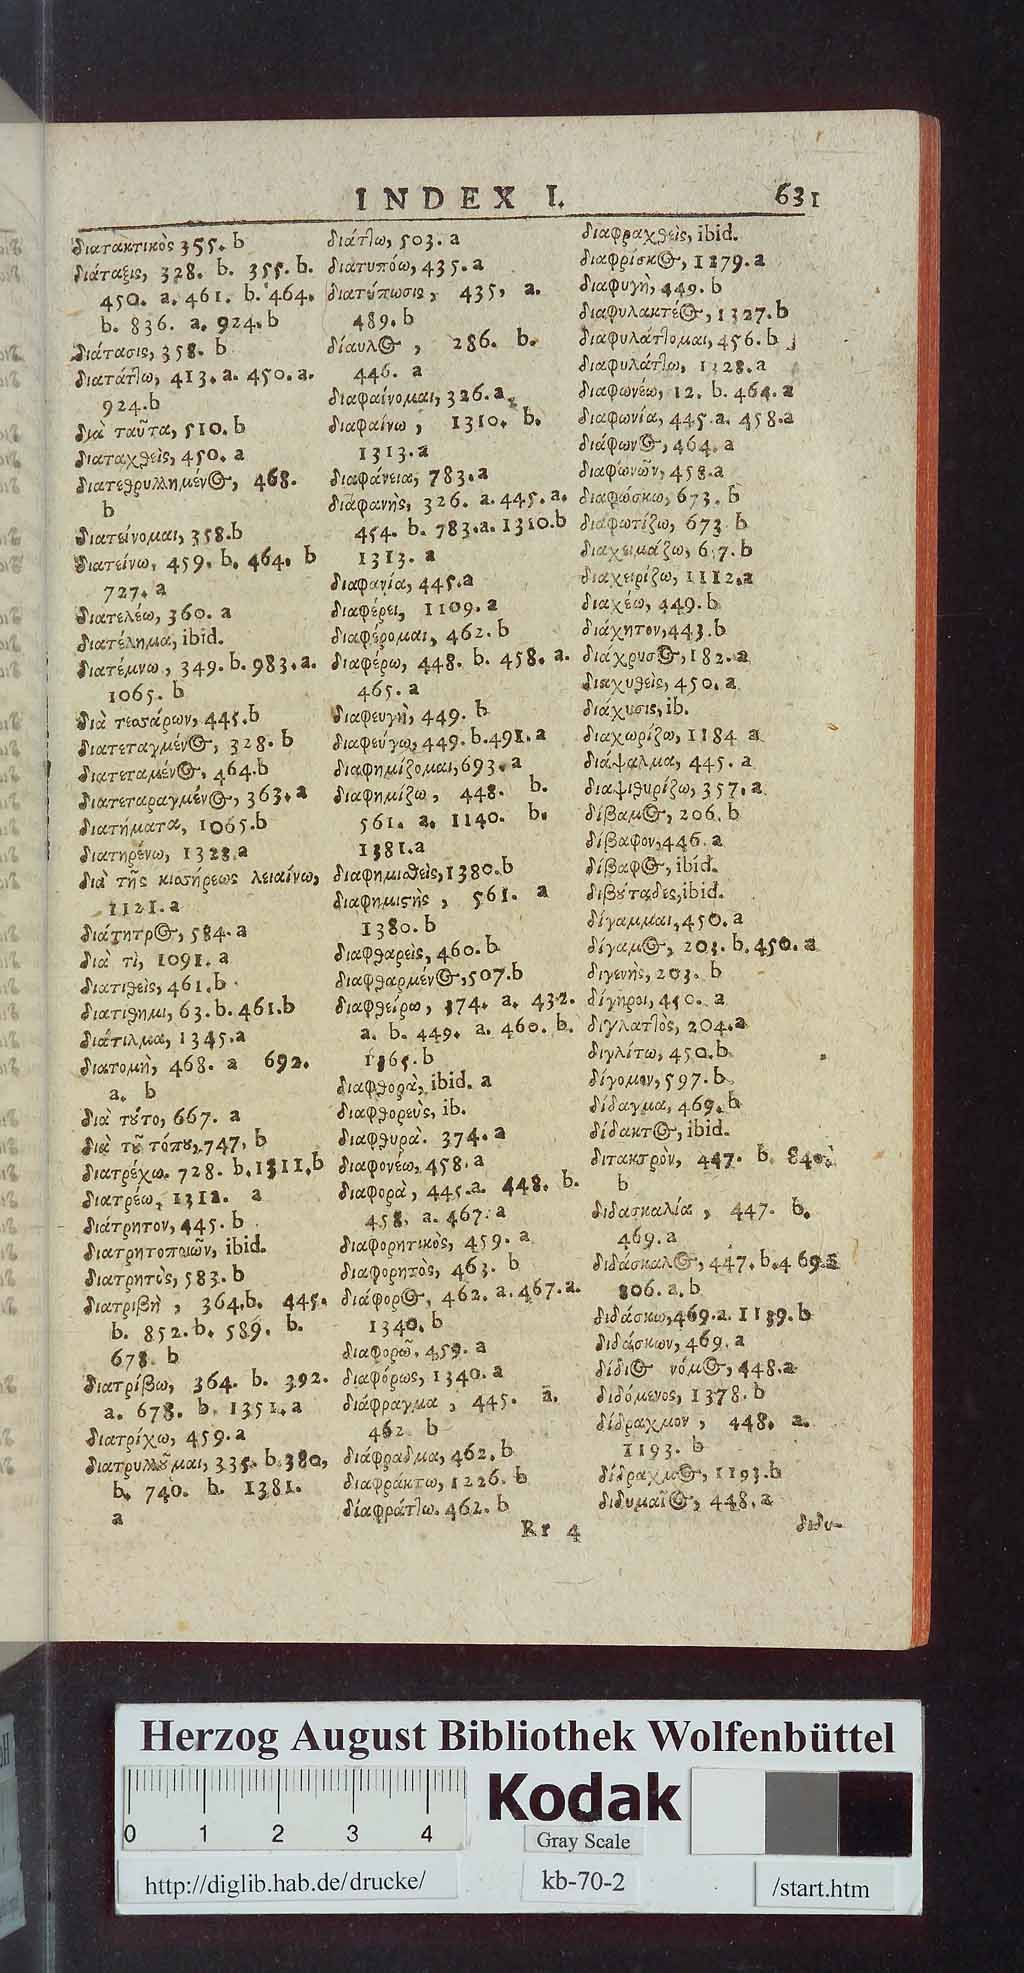 INDEX I. 631
διατακτικὸς 355. b
διάταξις, 328. b. 355. b.
450. a. 461. b. 464.
b. 836. a. 924. b
διάτασις, 358. b
διατάτλω, 413. a. 450. a.
924. b
διὰ ταῦτα, 510. b
διαταχθεὶς, 450. a
διατεθρυλλημένος, 468.
b
διατείνομαι, 358. b
διατείνω, 459. b. 464. b
727. a
διατελέω, 360. a
διατέλημα, ibid.
διατέμνω, 349. b. 983. a.
1065. b
διὰ τεσσάρων, 445. b
διατεταγμένος, 328. b
διατεταμένος, 464. b
διατεταραγμένος, 363. a
διατήματα, 1065. b
διατηρένω, 1328. a
διὰ τῆς κισσήρεως λειαίνω,
1121. a
διάτητρος, 584. a
διὰ τὶ, 1091. a
διατιθεὶς, 461. b
διατίθημι, 63. b. 461. b
διάτιλμα, 1345. a
διατομὴ, 468. a 692.
a. b
διὰ τȣ́το, 667. a
διὰ τȣ͂ τόπȣ, 747. b
διατρέχω. 728. b. 1311. b
διατρέω, 1312. a
διάτρητον, 445. b
διατρητοποιῶν, ibid.
διατρητὸς, 583. b
διατριβὴ, 364. b. 445.
b. 852. b. 589. b.
678. b
διατρίβω, 364. b. 392.
a. 678. b. 1351. a
διατρίχω, 459. a
διατρυλλȣ͂μαι, 335. b. 380,
b. 740. b. 1381.
a
διάτλω, 503. a
διατυπόω, 435. a
διατύπωσις, 435, a.
489. b
δίαυλος, 286. b.
446. a
διαφαίνομαι, 326. a.
διαφαίνω, 1310. b.
1313. a
διαφάνεια, 783. a
διαφανὴς, 326. a. 445. a.
454. b. 783. a. 1310. b
1313. a
διαφανία, 445. a
διαφέρει, 1109. a
διαφέρομαι, 462. b
διαφέρω, 448. b. 458. a.
465. a
διαφευγὴ, 449. b
διαφεύγω, 449. b. 491. a
διαφημίζομαι, 693. a
διαφημίζω, 448. b.
561. a. 1140. b.
1381. a
διαφημισθεὶς, 1380. b
διαφημιστὴς, 561. a
1380. b
διαφθαρεὶς, 460. b
διαφθαρμένος, 507. b
διαφθείρω, 374. a. 432.
a. b. 449. a. 460. b.
1365. b
διαφθορὰ, ibid. a
διαφθορεὺς, ib.
διαφθυρὰ. 374. a
διαφονέω, 458. a
διαφορὰ, 445. a. 448. b.
458. a. 467. a
διαφορητικὸς, 459. a
διαφορητὸς, 463. b
διάφορος, 462. a. 467. a.
1340. b
διαφορῶ, 459. a
διαφόρως, 1340. a
διάφραγμα, 445. a.
462. b
διάφραδμα, 462. b
διαφράκτω, 1226. b
διαφράτλω. 462. b
διαφραχθεὶς, ibid.
διαφρίσκος, 1279. a
διαφυγὴ, 449. b
διαφυλακτέος, 1327. b
διαφυλάτλομαι, 456. b
διαφυλάτλω, 1328. a
διαφωνέω, 12. b. 464. a
διαφωνία, 445. a. 458. a
διάφωνος, 464. a
διαφωνῶν, 458. a
διαφώσκω, 673. b
διαφωτίζω, 673 b
διαχειμάζω, 6 7. b
διαχειρίζω, 1112. a
διαχέω, 449. b
διάχητον, 443. b
διάχρυσος, 182. a
διαχυθεὶς, 450. a
διάχυσις, ib.
διαχωρίζω, 1184 a
διάψαλμα, 445. a
διαψιθυρίζω, 357. a
δίβαμος, 206. b
δίβαφον, 446. a
δίβαφος, ibid.
διβȣ́ταδες, ibid.
δίγαμμαι, 450. a
δίγαμος, 203. b. 450. a
διγενὴς, 203. b
δίγηροι, 450. a
διγλατλὸς, 204. a
διγλίτω, 450. b
δίγομον, 597. b
δίδαγμα, 469. b
δίδακτος, ibid.
διτακτρὸν, 447. b. 840.
b
διδασκαλία, 447. b.
469. a
διδάσκαλος, 447. b. 469. a
806. a. b
διδάσκω, 469. a. 1139. b
διδάσκων, 469. a
δίδιος νόμος, 448. a
διδόμενος, 1378. b
δίδραχμον, 448. a.
1193. b
δίδραχμος, 1193. b
διδυμαῖος, 448. a
Rr 4 διδυ-
Herzog August Bibliothek Wolfenbüttel
0 1 2 3 4
Kodak
Gray Scale
http://diglib.hab.de/drucke/ kb-70-2 /start.htm